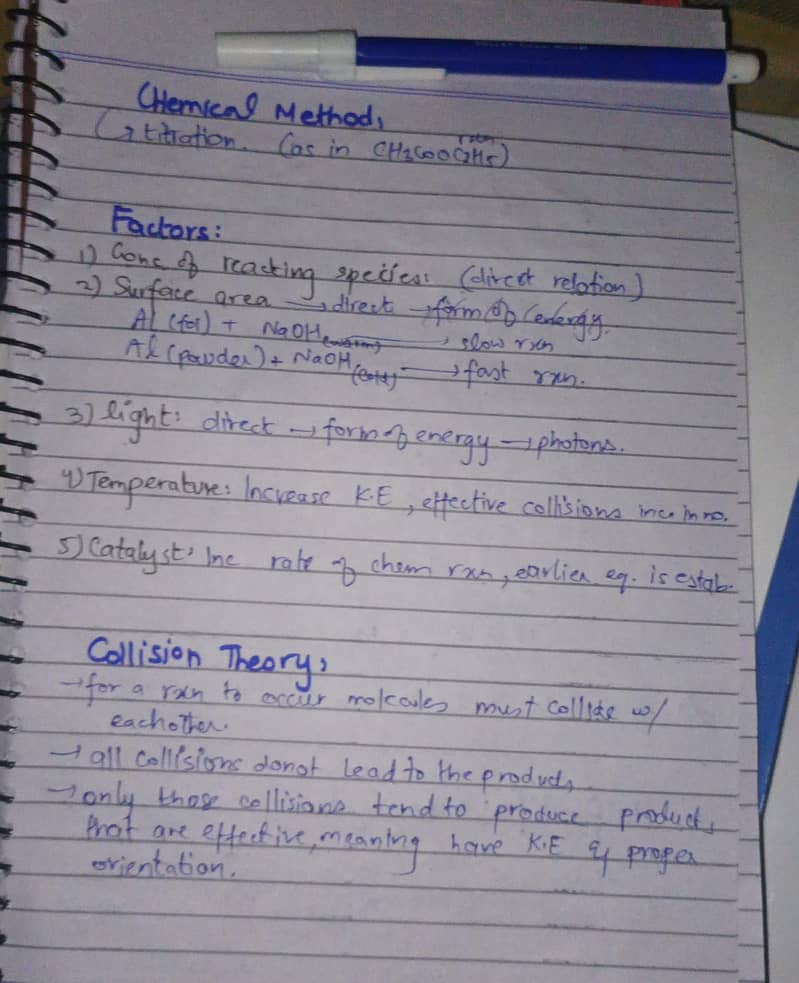 Chemical Method,
↳ titration. (as in CH3COOC2H5)
Factors:
1) Conc of reacting species: (direct relation)
2) Surface area → direct → form of energy.
Al (foi) + NaOH → slow rxn
Al (powder) + NaOH (cold) → fast rxn.
3) light: direct → form of energy → photons.
4) Temperature: Increase K.E, effective collisions inc in no.
5) Catalyst: Inc rate of chem rxn, earlier eq. is estab.
Collision Theory,
→ for a rxn to occur molcules must collide w/
eachother.
→ all collisions donot lead to the product,
→ only those collisions tend to produce product,
that are effective, meaning have K.E & proper
orientation.